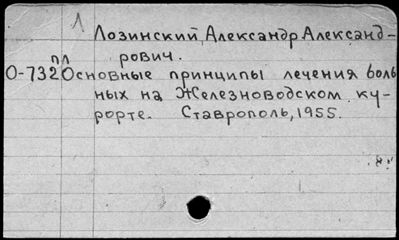 Л
Лозинский, Александр Александ-
рович.
пл
О-732 Основные принципы лечения боль
ных на Железноводском ку-
рорте. Ставрополь, 1955.